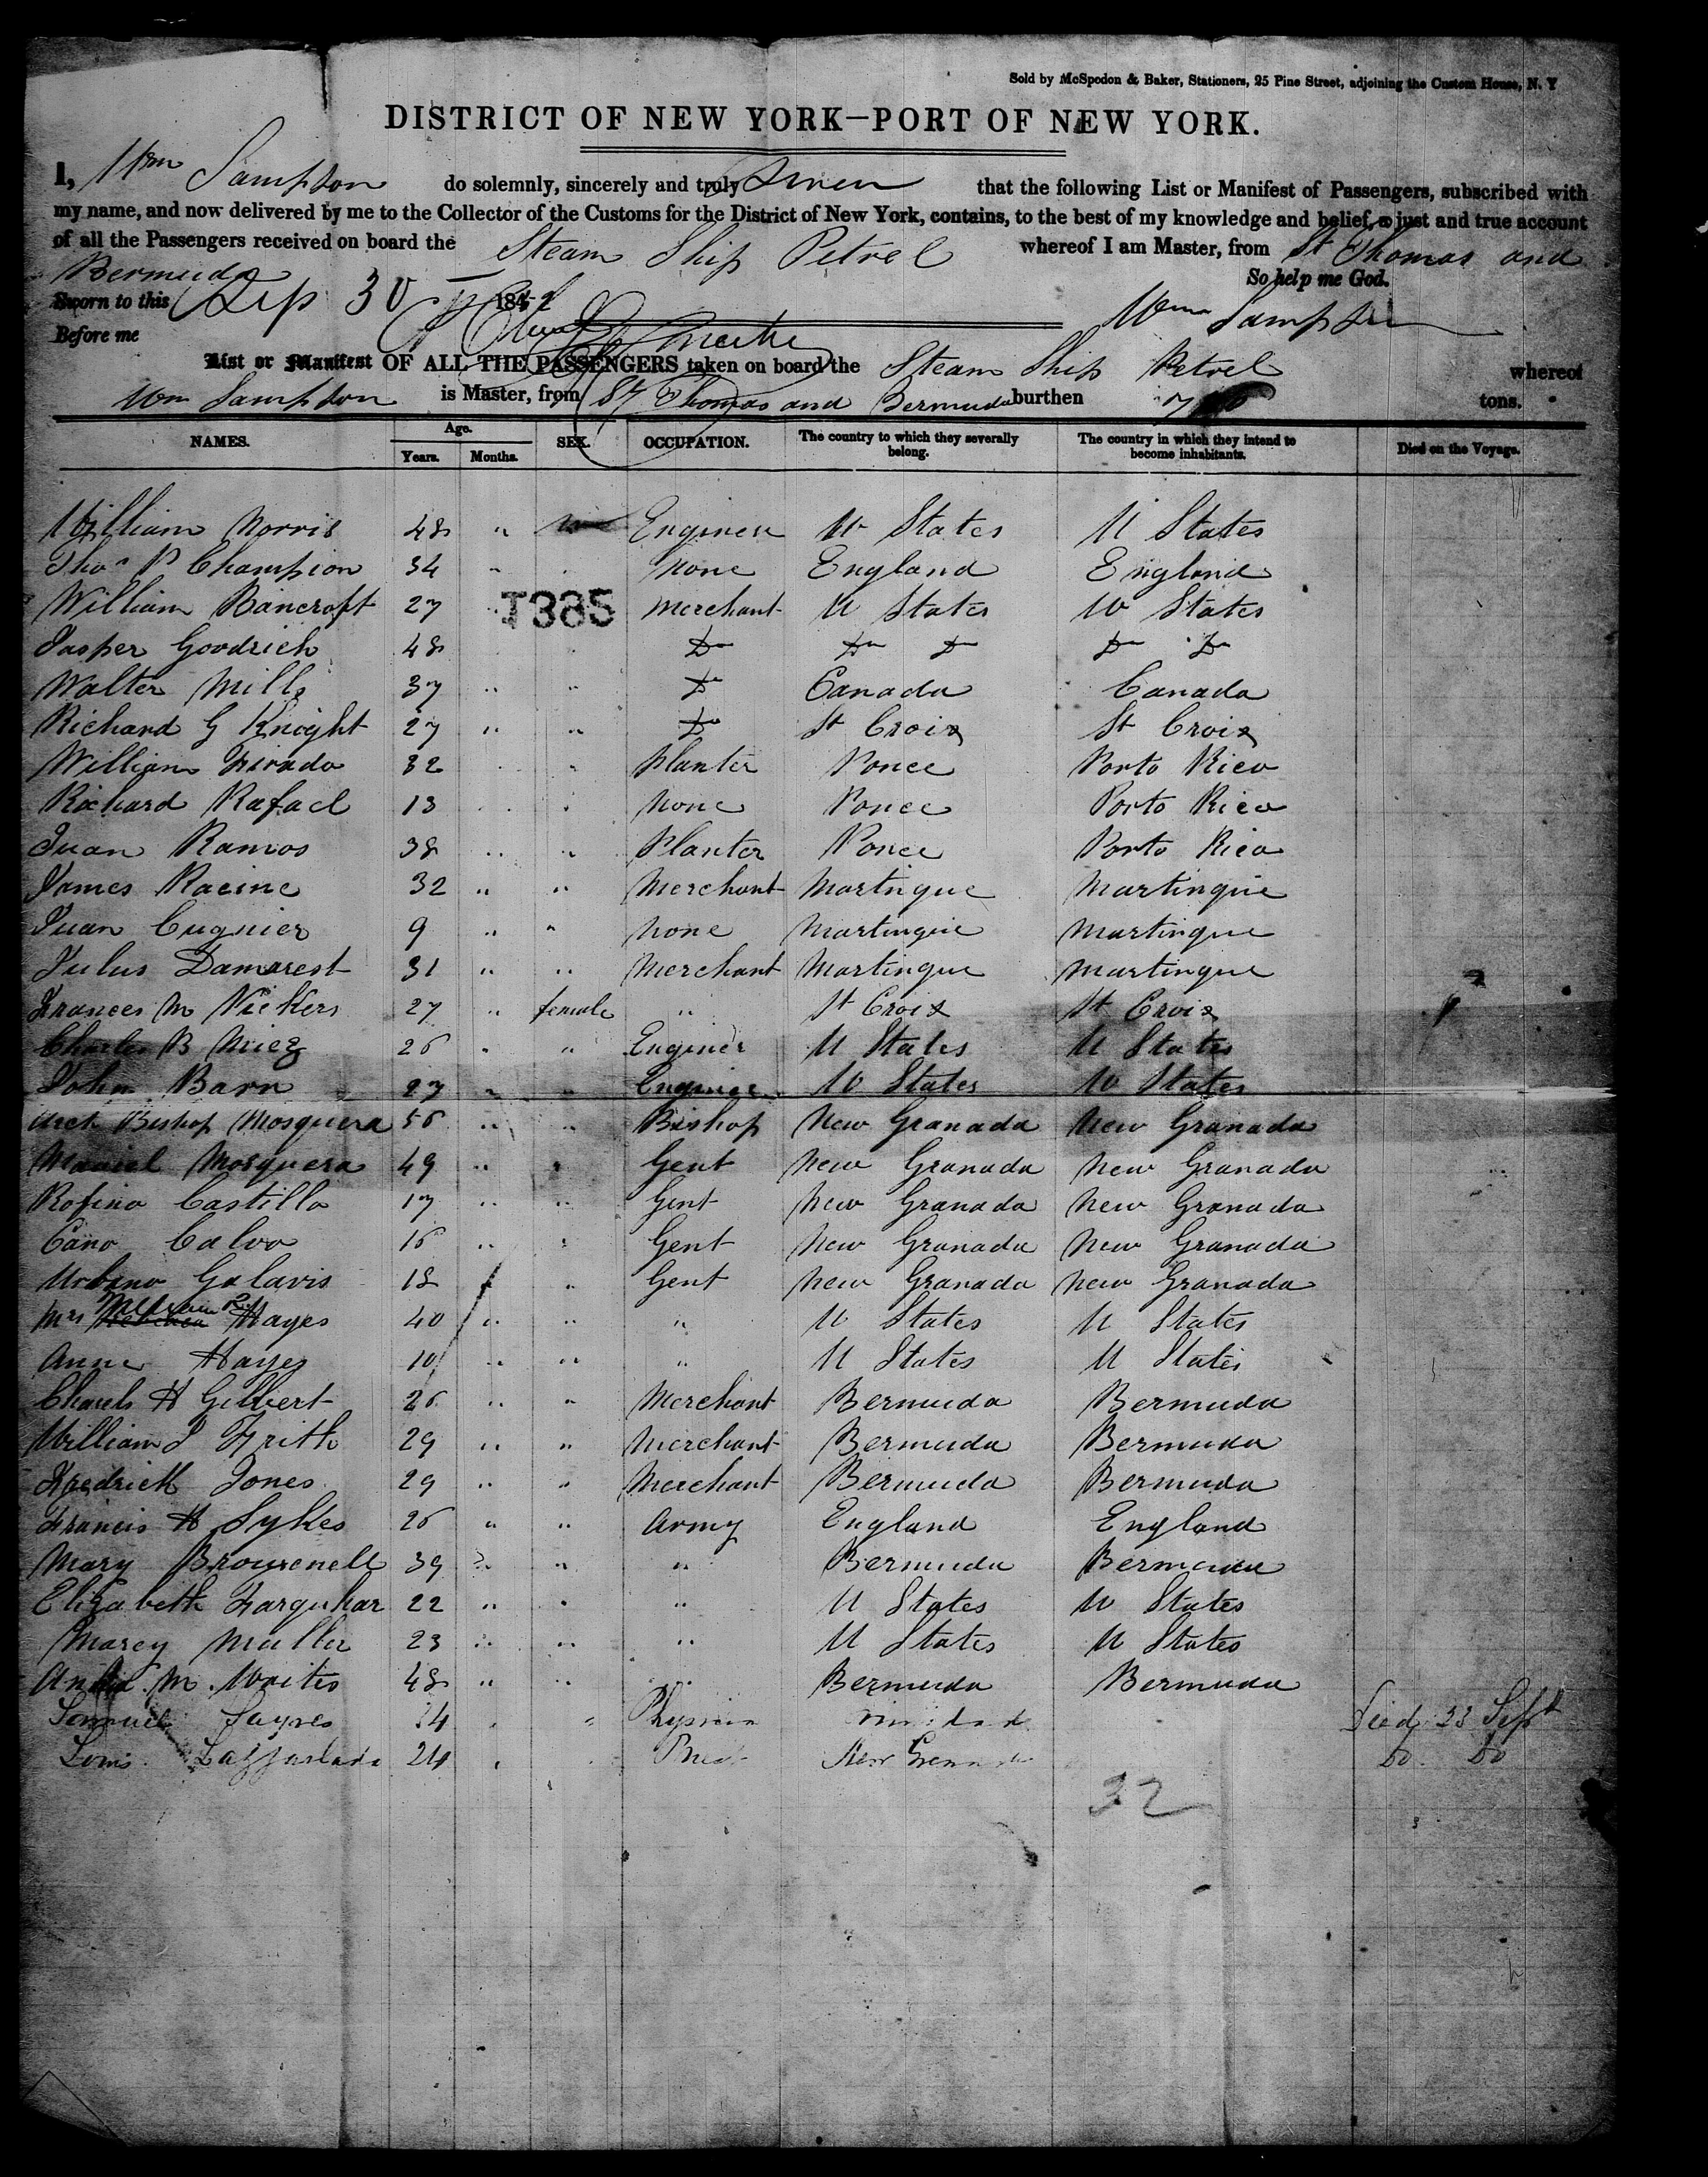 Sold by McSpedon & Baker, Stationers, 25 Pine Street, adjoining the Custom House, N. Y
DISTRICT OF NEW YORK—PORT OF NEW YORK.
I, Wm Sampson do solemnly, sincerely and truly swear that the following List or Manifest of Passengers, subscribed with
my name, and now delivered by me to the Collector of the Customs for the District of New York, contains, to the best of my knowledge and belief, a just and true account
of all the Passengers received on board the Steam Ship Petrel whereof I am Master, from St Thomas and
Bermuda So help me God.
Sworn to this Sep 30 185 Wm Sampson
Before me
List or Manifest OF ALL THE PASSENGERS taken on board the Steam Ship Petrel whereof
Wm Sampson is Master, from St Thomas and Bermuda burthen tons.
NAMES. Age. Years. Months. SEX. OCCUPATION. The country to which they severally belong. The country in which they intend to become inhabitants. Died on the Voyage.
William Norris 48 " m Engineer U States U States
Thos P Champion 34 " None England England
William Bancroft 27 " Merchant U States U States
T385
Jasper Goodrich 48 Do Do Do Do Do
Walter Mills 37 " " Do Canada Canada
Richard G Knight 27 " " Do St Croix St Croix
William Firado 32 " " Planter Ponce Porto Rico
Richard Rafael 13 " " None Ponce Porto Rico
Juan Ramos 38 " " Planter Ponce Porto Rico
James Racine 32 " " Merchant Martinque Martinque
Juan Cugnier 9 " " None Martinque Martinque
Julus Damarest 31 " " Merchant Martinque Martinque
Frances M Vickers 27 " female " St Croix St Croix
Charles B 26 " " Enginer U States U States
John Barn 27 " " Enginer U States U States
Arch Bishop Mosquera 56 " " Bishop New Granada New Granada
Manuel Mosquera 49 " " Gent New Granada New Granada
Rofino Castillo 17 " " Gent New Granada New Granada
Cano Calvo 16 " " Gent New Granada New Granada
Urbano Galavis 18 " Gent New Granada New Granada
Mrs Hayes 40 " " " U States U States
Anne Hayes 10 " " " U States U States
Charels H Gilbert 26 " " Merchant Bermuda Bermuda
William J Frith 29 " " Merchant Bermuda Bermuda
Fredrick Jones 29 " " Merchant Bermuda Bermuda
Francis H Sykes 26 " " Army England England
Mary Browenell 39 " " " Bermuda Bermuda
Elizabeth Farquhar 22 " " " U States U States
Marey Muller 23 " " " U States U States
M. Waites 48 " " " Bermuda Bermuda
Samuel Jaynes 14 " " Died 23 Sept
Louis 24 " New Do Do
32